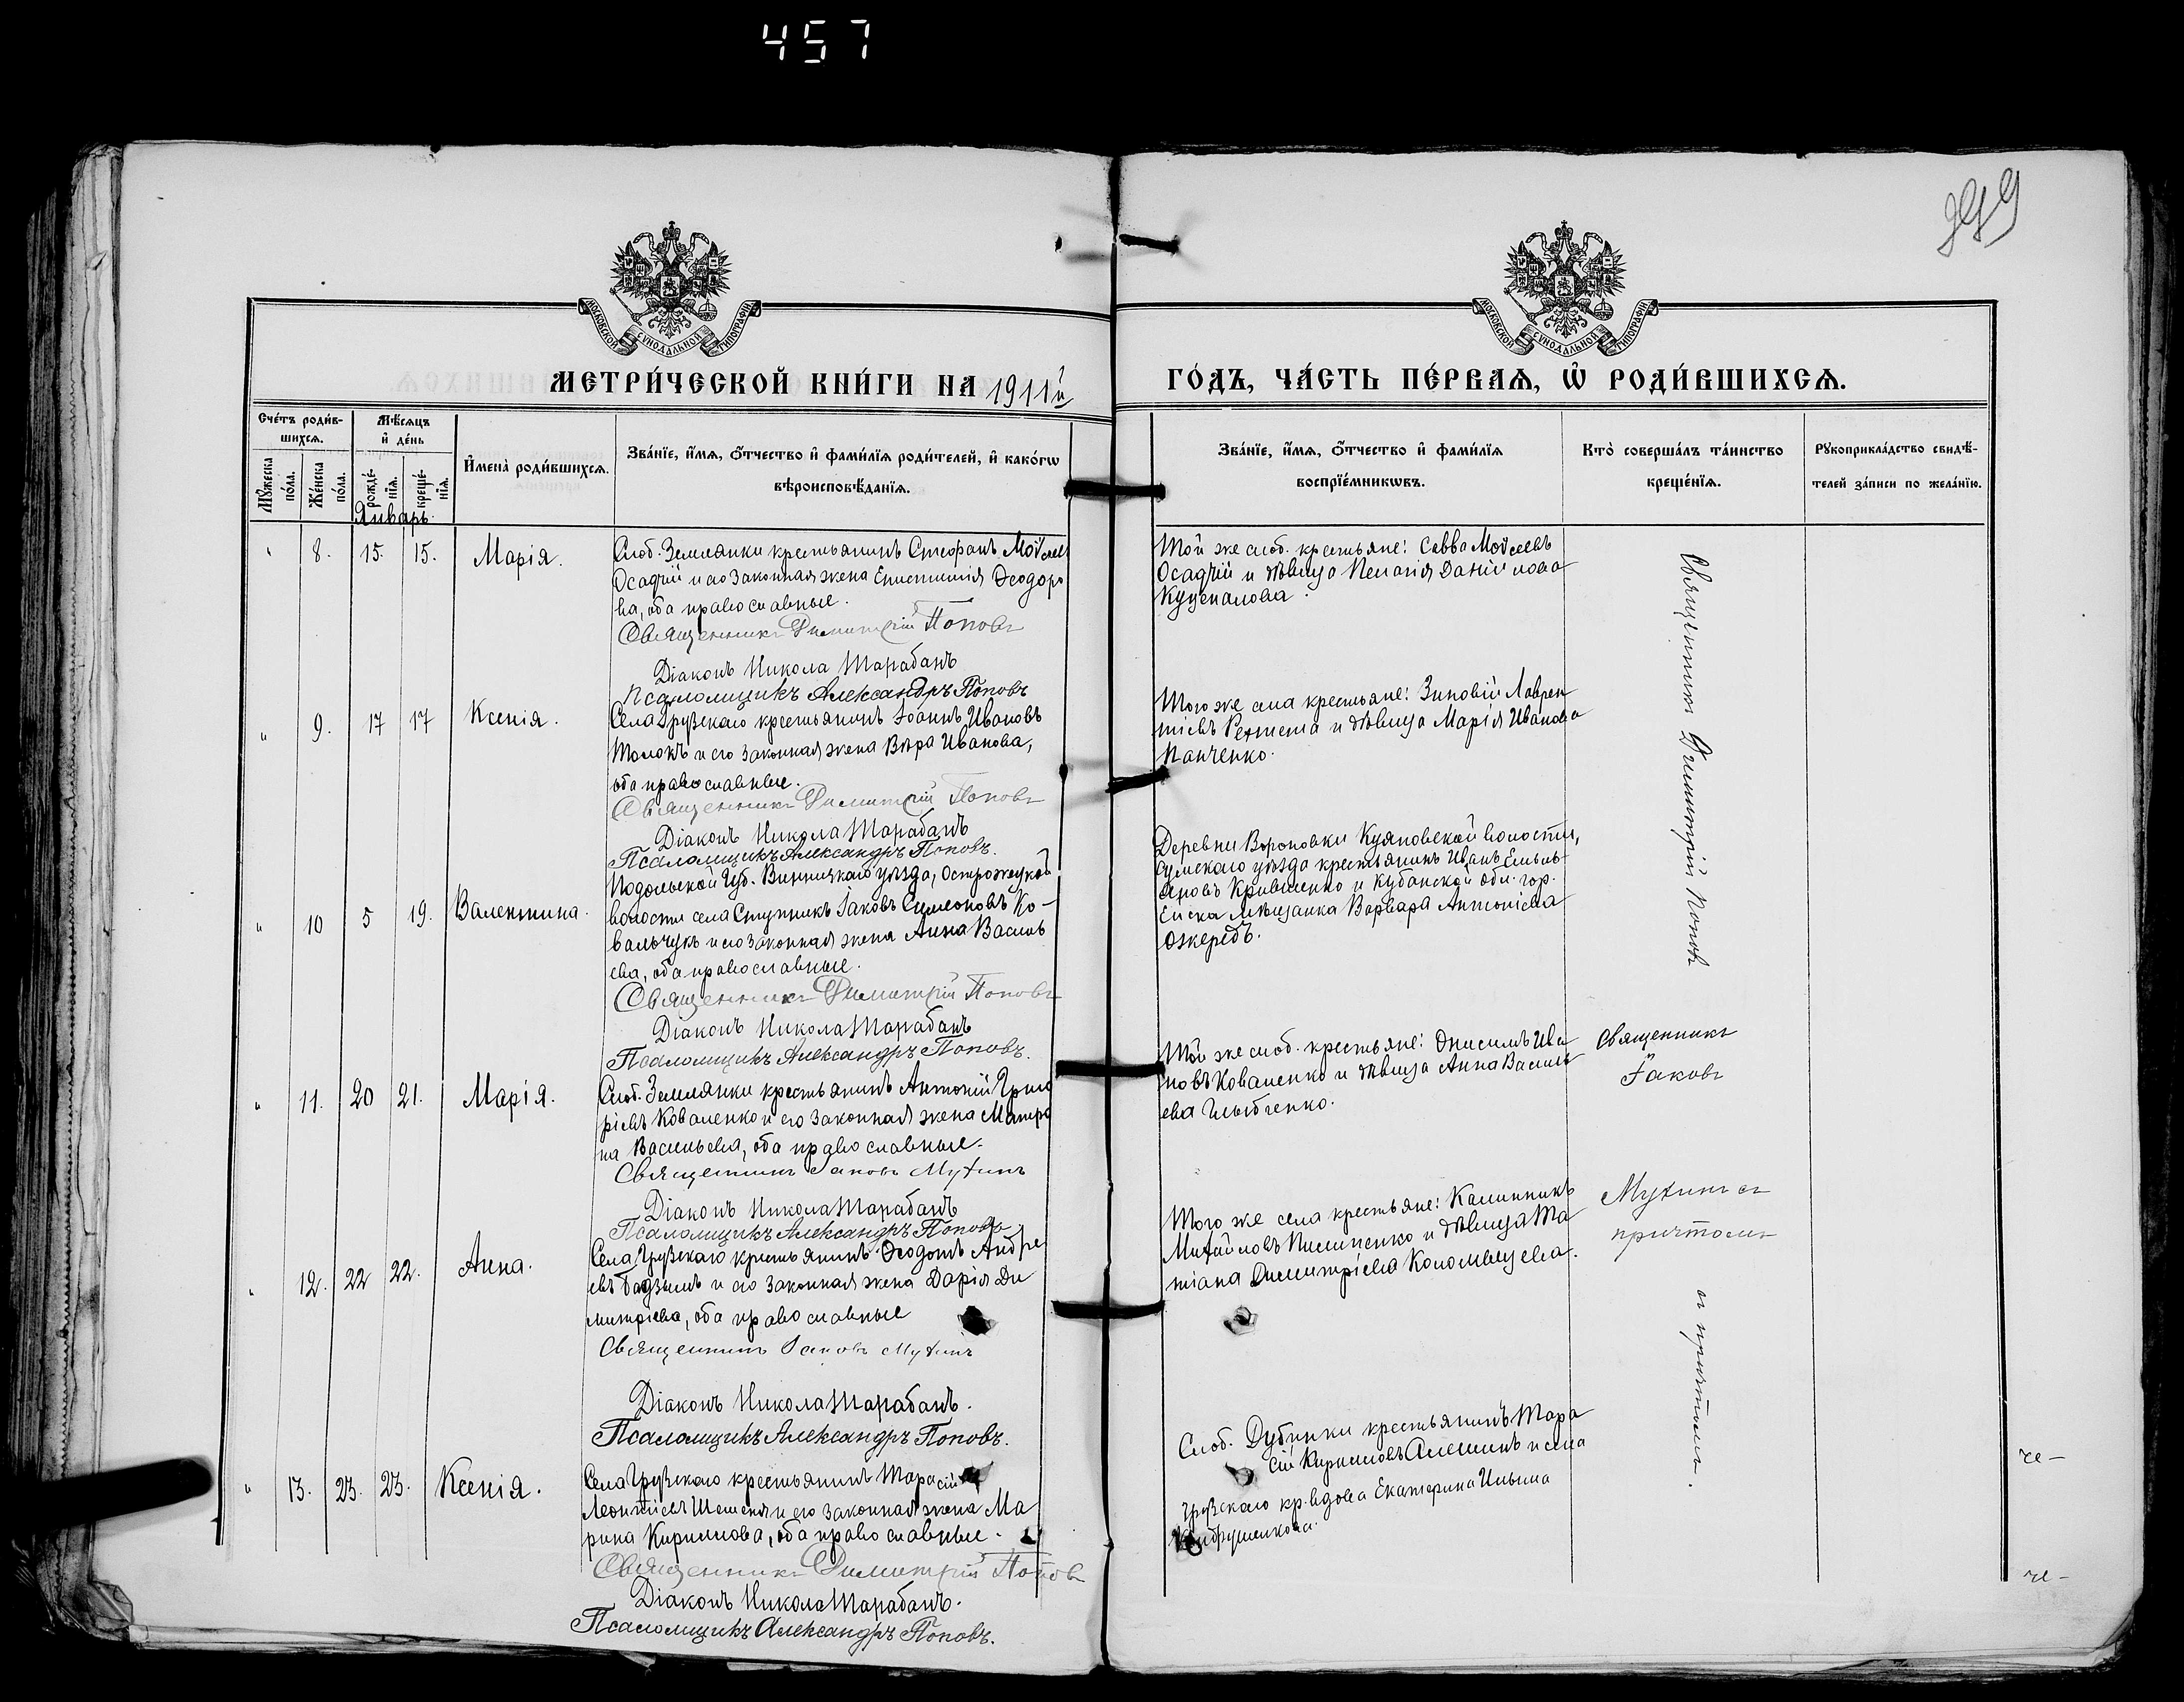 457
399
МОСКОВСКОЙ СѴНОДАЛЬНОЙ ТИПОГРАФІИ
МОСКОВСКОЙ СѴНОДАЛЬНОЙ ТИПОГРАФІИ
МЕТРИ́ЧЕСКОЙ КНИ́ГИ НА 1911й
ГО́ДЪ, ЧА́СТЬ ПЕ́РВАЯ, Ѡ РОДИ́ВШИХСЯ.
Сче́тъ роди́в-
шихся.
Мꙋ́жеска
по́ла.
Же́нска
по́ла.
Мѣ́сяцъ
и де́нь
рожде́-
нїя.
креще́-
нїя.
Январь.
И҆мена̀ роди́вшихся.
Зва́нїе, и҆́мя, ѻ҆́тчество и҆ фами́лїя роди́телей, и҆ како́гѡ
вѣроисповѣ́данїя.
Зва́нїе, и҆́мя, ѻ҆́тчество и҆ фами́лїя
воспрїе́мникѡвъ.
Кто̀ соверша́лъ та́инство
креще́нїя.
Рꙋкоприкла́дство свидѣ́-
телей за́писи по жела́нїю.
" 8. 15. 15. Марія.
Слоб. Землянки крестьянинъ Стефанъ Моѵсеевъ
Осадчій и его законная жена Епистимія Ѳеодоро
ва, оба православные.
Священникъ Димитрій Поповъ
Діаконъ Никола Тарабанъ
Псаломщикъ Александръ Поповъ
Той же слоб. крестьяне: Савва Моѵсеевъ
Осадчій и дѣвица Пелагія Даніилова
Куцепалова.
" 9. 17 17 Ксенія.
Села Грузскаго крестьянинъ Іоаннъ Ивановъ
Толокъ и его законная жена Вѣра Иванова,
оба православные.
Священникъ Димитрій Поповъ
Діаконъ Никола Тарабанъ
Псаломщикъ Александръ Поповъ.
Того же села крестьяне: Зиновій Лаврен
тіевъ и дѣвица Марія Иванова
Панченко.
" 10 5 19. Валентина.
Подольской губ. Винницкаго уѣзда, Острожецкой
волости села Ступникъ Іаковъ Симеоновъ Ко-
вальчукъ и его законная жена Анна Василь
ева, оба православные.
Священникъ Димитрій Поповъ
Діаконъ Никола Тарабанъ
Псаломщикъ Александръ Поповъ.
Деревни Вороновки Куяновской волости,
Сумскаго уѣзда крестьянинъ Иванъ Емель-
яновъ Крившенко и Кубанской обл. гор.
Ейска мѣщанка Варвара Антоніева
Ожередъ.
Священникъ Димитрій Поповъ
" 11. 20 21. Марія.
Слоб. Землянки крестьянинъ Антоній Григо
ріевъ Коваленко и его законная жена Матро
на Васильева, оба православные.
Священникъ Іаковъ Мухинъ
Діаконъ Никола Тарабанъ
Псаломщикъ Александръ Поповъ.
Той же слоб. крестьяне: Онисимъ Ива
новъ Коваленко и дѣвица Анна Василь
ева
Священникъ
Іаковъ
" 12. 22 22. Анна.
Села Грузскаго крестьянинъ Ѳеодотъ Андре
евъ и его законная жена Дарія Ди
митріева, оба православные
Священникъ Іаковъ Мухинъ
Діаконъ Никола Тарабанъ.
Псаломщикъ Александръ Поповъ.
Того же села крестьяне: Каллиникъ
Михайловъ Пилипенко и дѣвица Та
тіана Димитріева Коломыцева.
Мухинъ съ
причтомъ
" 13. 23. 23. Ксенія.
Села Грузскаго крестьянинъ Тарасій
Леонтіевъ и его законная жена Ма
рина Кириллова, оба православные.
Священникъ Димитрій Поповъ
Діаконъ Никола Тарабанъ.
Псаломщикъ Александръ Поповъ.
Слоб. Дубинки крестьянинъ Тара
сій Кирилловъ Алешинъ и села
Грузскаго кр. вдова Екатерина Ильина
съ причтомъ.
че-
че-